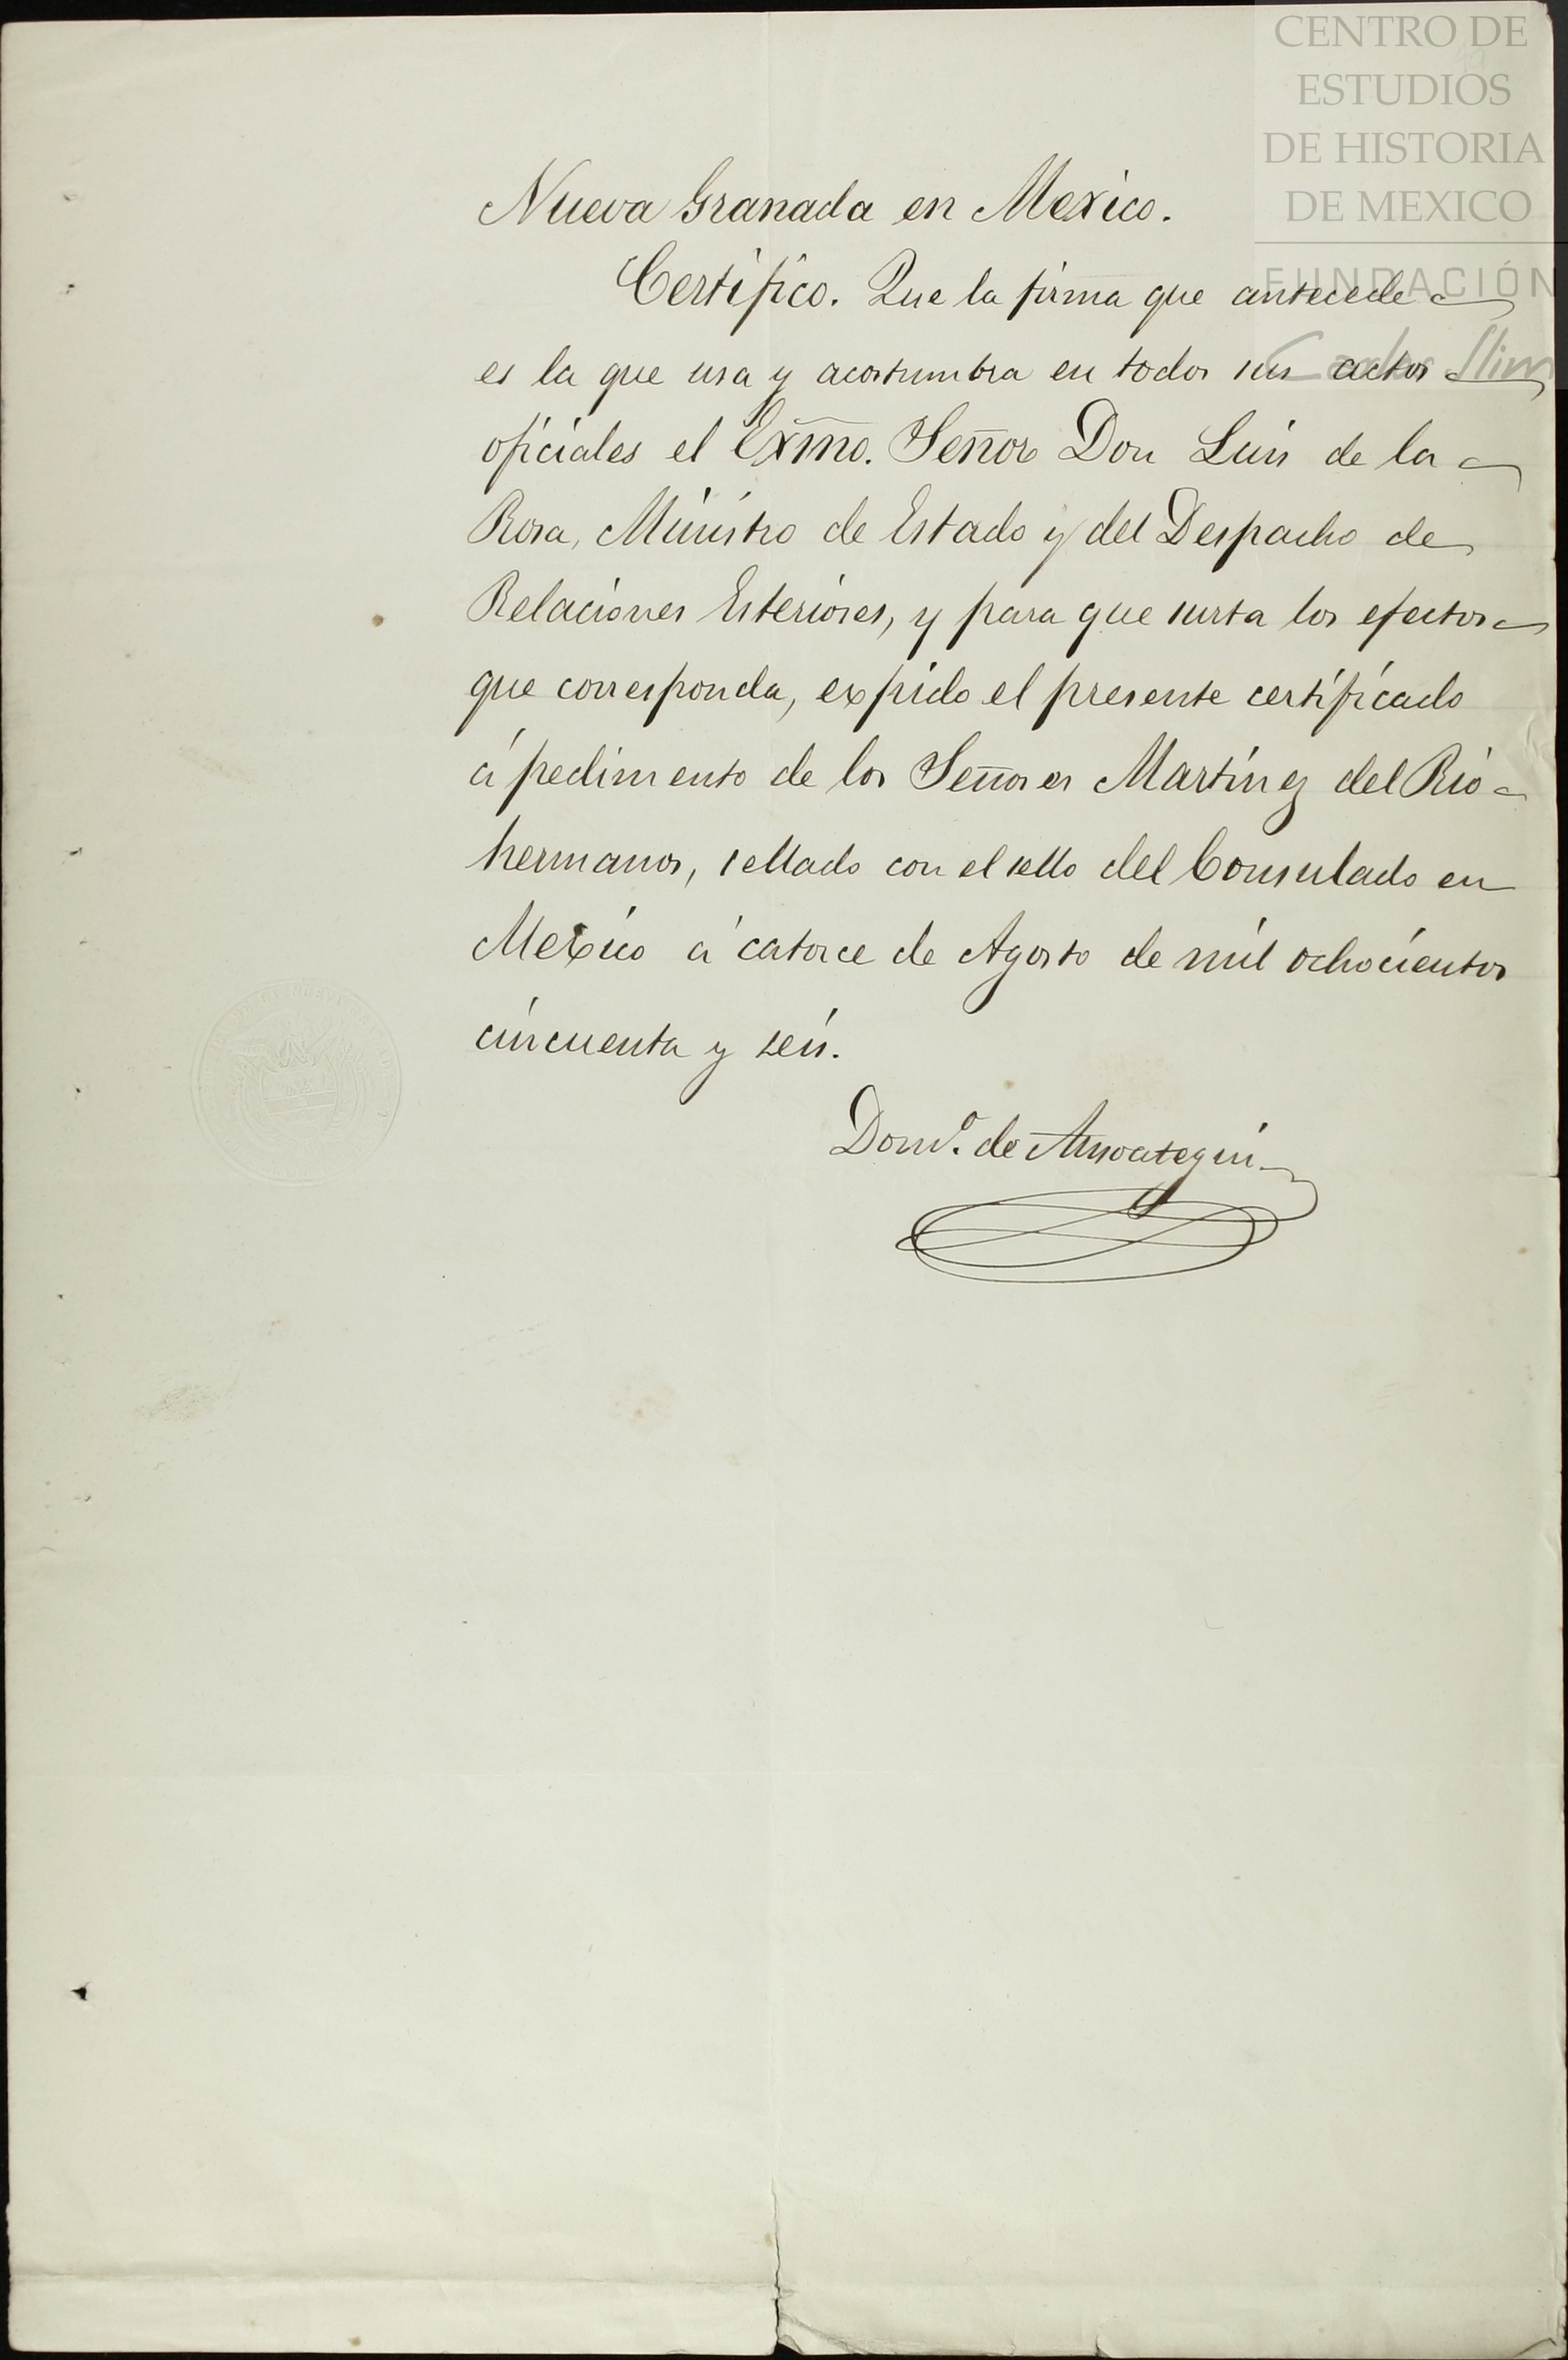 CENTRO DE
ESTUDIOS
DE HISTORIA
DE MEXICO
FUNDACIÓN
Carlos Slim
Nueva Granada en Mexico.
Certifico. Que la firma que antecede
es la que usa y acostumbra en todos sus actos
oficiales el Exmo. Señor Don Luis de la
Rosa, Ministro de Estado y del Despacho de
Relaciones Esteriores, y para que surta los efectos
que corresponda, expido el presente certificado
á pedimento de los Señores Martínez del Rio
hermanos, sellado con el sello del Consulado en
Mexico á catorce de Agosto de mil ochocientos
cincuenta y seis.
Domo. de Ansoategui